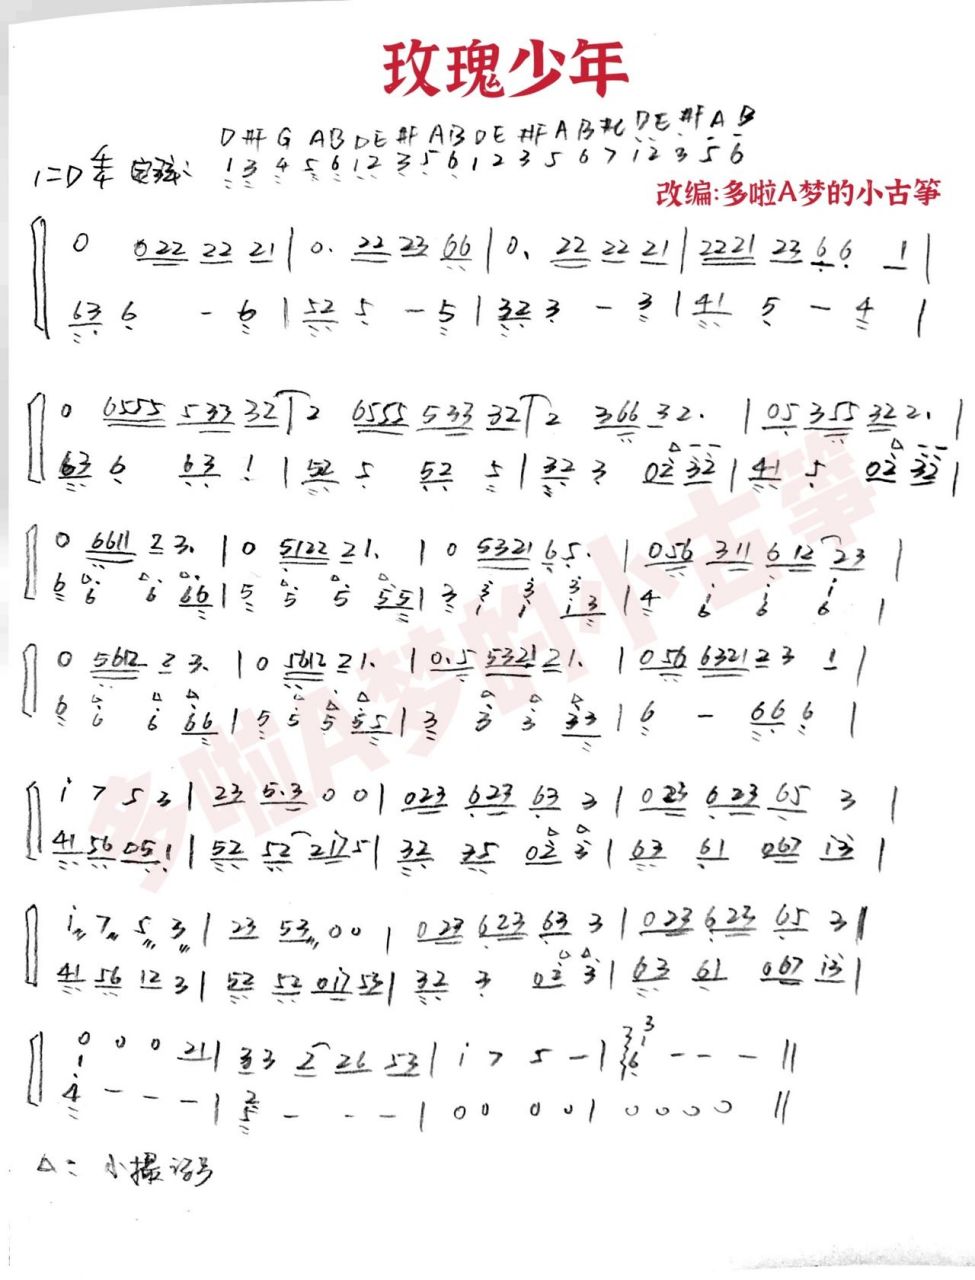 玫瑰少年
D #F G A B D E #F A B D E #F A B #C D E #F A B
1=D 4/4 定弦: 1 3 4 5 6 1 2 3 5 6 1 2 3 5 6 7 1 2 3 5 6
改编:多啦A梦的小古筝
0 022 22 21 | 0. 22 23 66 | 0. 22 22 21 | 2221 23 6 6 1 |
63 6 - 6 | 52 5 - 5 | 32 3 - 3 | 41 5 - 4 |
0 6555 533 32 | 2 6555 533 32 | 2 366 32. | 05 355 32 2. |
63 6 63 1 | 52 5 52 5 | 32 3 02 32 | 41 5 02 32 |
0 6611 2 3. | 0 5122 2 1. | 0 5321 6 5. | 056 311 6 12 23 |
6 6 6 66 | 5 5 5 55 | 3
0 5612 2 3. | 0 5612 2 1. | 0.5 5321 2 1. | 056 6321 2 3 1 |
6 6 6 66 | 5 5 5 55 | 3 3 3 33 | 6 - 66 6 |
i 7 5 3 | 23 5.3 0 0 | 023 623 63 3 | 023 623 65 3 |
41 56 051 | 52 52 2i75 | 32 35 02 3 | 63 61 067 i3 |
i 7 5 3 | 23 53 0 0 | 023 623 63 3 | 023 623 65 3 |
41 56 12 3 | 52 52 0i7 53 | 32 3 02 3 | 63 61 067 i3 |
0 0 0 0 21 | 33 2 26 53 | i 7 5 - | - - - ||
4 - - - | 5 - - - | 0 0 0 0 | 0 0 0 0 ||
△: 小撮记号
多啦A梦的小古筝